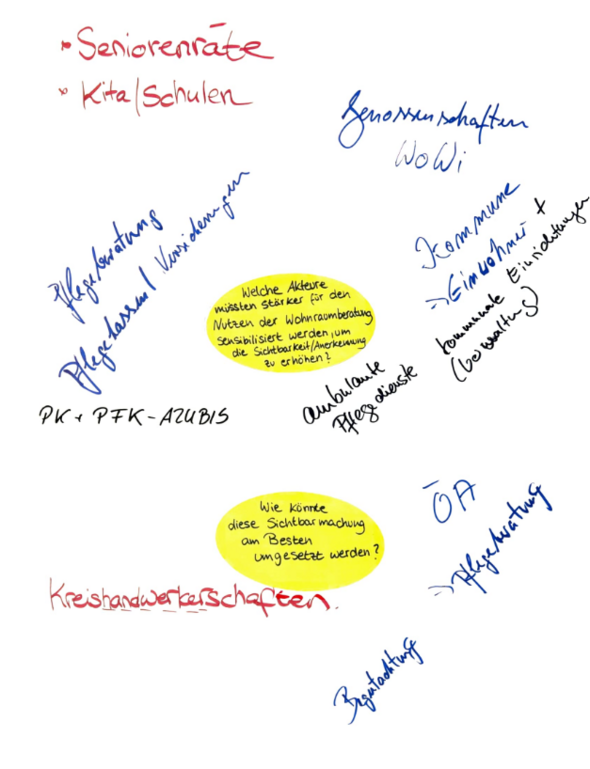 • Seniorenräte
• Kita/Schulen
Genossenschaften
WoWi
Pflegeberatung
Pflegekassen/Versicherungen
Kommune
→Einwohner +
kommunale Einrichtungen
(Verwaltung)
Welche Akteure
müssten stärker für den
Nutzen der Wohnraumberatung
sensibilisiert werden, um
die Sichtbarkeit/Anerkennung
zu erhöhen?
ambulante
Pflegedienste
PK + PFK-AZUBIS
Wie könnte
diese Sichtbarmachung
am Besten
umgesetzt werden?
ÖA
→ Pflegeberatung
Kreishandwerkerschaften.
Begutachtung